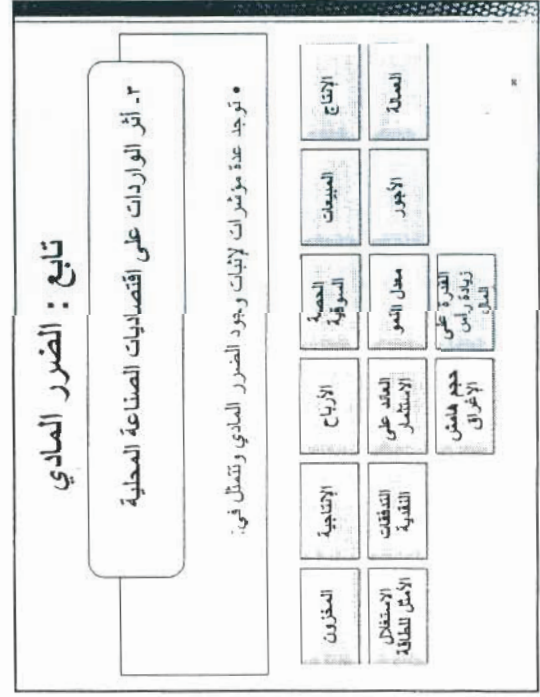 تابع : الضرر المادي
٣- أثر الواردات على اقتصاديات الصناعة المحلية
• توجد عدة مؤشرات لإثبات وجود الضرر المادي وتتمثل في:
الإنتاج
المبيعات
الحصة
السوقية
الأرباح
الإنتاجية
المخزون
العمالة
الأجور
معدل النمو
العائد على
الاستثمار
التدفقات
النقدية
الاستغلال
الأمثل للطاقة
القدرة على
زيادة رأس
المال
حجم هامش
الإغراق